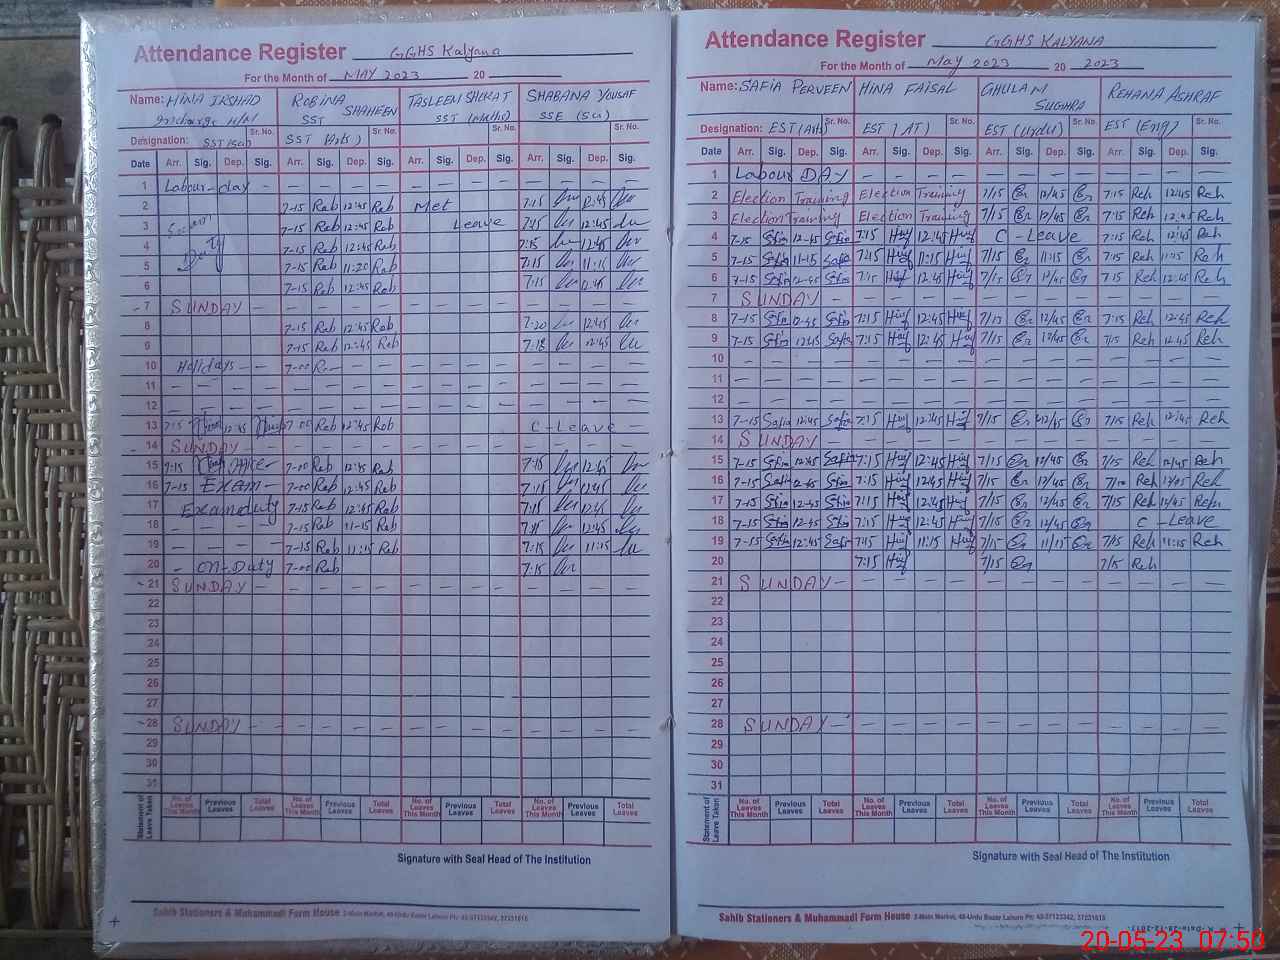 Attendance Register GGHS Kalyana
For the Month of MAY 2023 20
Name: HINA IRSHAD ROBINA SHAHEEN TASLEEM SHOKAT SHABANA YOUSAF
Incharge H/M SST SST (Maths) SSE (Sci)
Designation: SST(Sci) Sr. No. SST (Arts) Sr. No. Sr. No. Sr. No.
Date Arr. Sig. Dep. Sig. Arr. Sig. Dep. Sig. Arr. Sig. Dep. Sig. Arr. Sig. Dep. Sig.
1 Labour - day - - - - - - - - - - - - -
2 7-15 Rab 12:45 Rab Met 7:15 12:45
3 7-15 Rab 12:45 Rab Leave 7:15 12:45
4 Duty 7-15 Rab 12:45 Rab 7:15 12:45
5 7-15 Rab 11:20 Rab 7:15 11:15
6 7-15 Rab 12:45 Rab 7:15 12:45
7 SUNDAY - - - - - - - - - - - - -
8 7-15 Rab 12:45 Rab 7:20 12:45
9 7-15 Rab 12:45 Rab 7:18 12:45
10 Holidays - - 7-00 R - - - - - - - - - -
11 - - - - - - - - - - - - - - - -
12 - - - - - - - - - - - - - - - -
13 7:15 12:45 7-05 Rab 12:45 Rab C - Leave -
14 SUNDAY - - - - - - - - - - - - -
15 7:15 7-00 Rab 12:45 Rab 7:15 12:45
16 7-15 Exam - 7-00 Rab 12:45 Rab 7:15 12:45
17 Exam duty 7-15 Rab 12:45 Rab 7:15 12:45
18 - - - - 7-15 Rab 11-15 Rab 7:15 12:45
19 - - - - 7-15 Rab 11:15 Rab 7:15 11:15
20 - on-Duty 7-00 Rab 7:15
21 SUNDAY - - - - - - - - - - - - -
22
23
24
25
26
27
28 SUNDAY - - - - - - -
29
30
31
Statement of Leave Taken No. of Leaves This Month Previous Leaves Total Leaves No. of Leaves This Month Previous Leaves Total Leaves No. of Leaves This Month Previous Leaves Total Leaves No. of Leaves This Month Previous Leaves Total Leaves
Signature with Seal Head of The Institution
Sahib Stationers & Muhammadi Form House 2-Main Market, 40-Urdu Bazar Lahore Ph: 42-37123342, 37231615
Attendance Register GGHS KALYANA
For the Month of May 2023 20 2023
Name: SAFIA PERVEEN HINA FAISAL GHULAM SUGHRA REHANA ASHRAF
Designation: EST (Arts) EST (AT) Sr. No. EST (Urdu) Sr. No. EST (Eng) Sr. No.
Date Arr. Sig. Dep. Sig. Arr. Sig. Dep. Sig. Arr. Sig. Dep. Sig. Arr. Sig. Dep. Sig.
1 Labour DAY - - - - - - - - - - - -
2 Election Training Election Training 7/15 12/45 7:15 Reh 12:45 Reh
3 Election Training Election Training 7/15 12/45 7:15 Reh 12:45 Reh
4 7-15 Safia 12-45 Safia 7:15 12:45 C - Leave 7:15 Reh 12:45 Reh
5 7-15 Safia 11-15 Safia 7:15 11:15 7/15 11:15 7:15 Reh 11:15 Reh
6 7-15 Safia 12-45 Safia 7:15 12:45 7/15 12/45 7:15 Reh 12:45 Reh
7 SUNDAY - - - - - - - - - - - - -
8 7-15 Safia 12-45 Safia 7:15 12:45 7/15 12/45 7:15 Reh 12:45 Reh
9 7-15 Safia 12:45 Safia 7:15 12:45 7/15 12/45 7/15 Reh 12:45 Reh
10 - - - - - - - - - - - - - - - -
11 - - - - - - - - - - - - - - - -
12 - - - - - - - - - - - - - - - -
13 7-15 Safia 12:45 Safia 7:15 12:45 7/15 12/45 7/15 Reh 12:45 Reh
14 SUNDAY - - - - - - - - - - - - -
15 7-15 Safia 12:45 Safia 7:15 12:45 7/15 12/45 7/15 Reh 12/45 Reh
16 7-15 Safia 12-45 Safia 7:15 12:45 7/15 12/45 Reh 12/45 Reh
17 7-15 Safia 12-45 Safia 7:15 12:45 7/15 12/45 7/15 Reh 12/45 Reh
18 7-15 Safia 12-45 Safia 7:15 12:45 7/15 12/45 C - Leave
19 7-15 Safia 12:45 Safia 7:15 11:15 7/15 11/15 7/15 Reh 11:15 Reh
20 7:15 7/15 7/15 Reh
21 SUNDAY - - - - - - - - - - - - -
22
23
24
25
26
27
28 SUNDAY - - - - - - - - - - - - -
29
30
31
Statement of Leave Taken No. of Leaves This Month Previous Leaves Total Leaves No. of Leaves This Month Previous Leaves Total Leaves No. of Leaves This Month Previous Leaves Total Leaves No. of Leaves This Month Previous Leaves Total Leaves
Signature with Seal Head of The Institution
Sahib Stationers & Muhammadi Form House 2-Main Market, 40-Urdu Bazar Lahore Ph: 42-37123342, 37231615
20-05-23 07:50